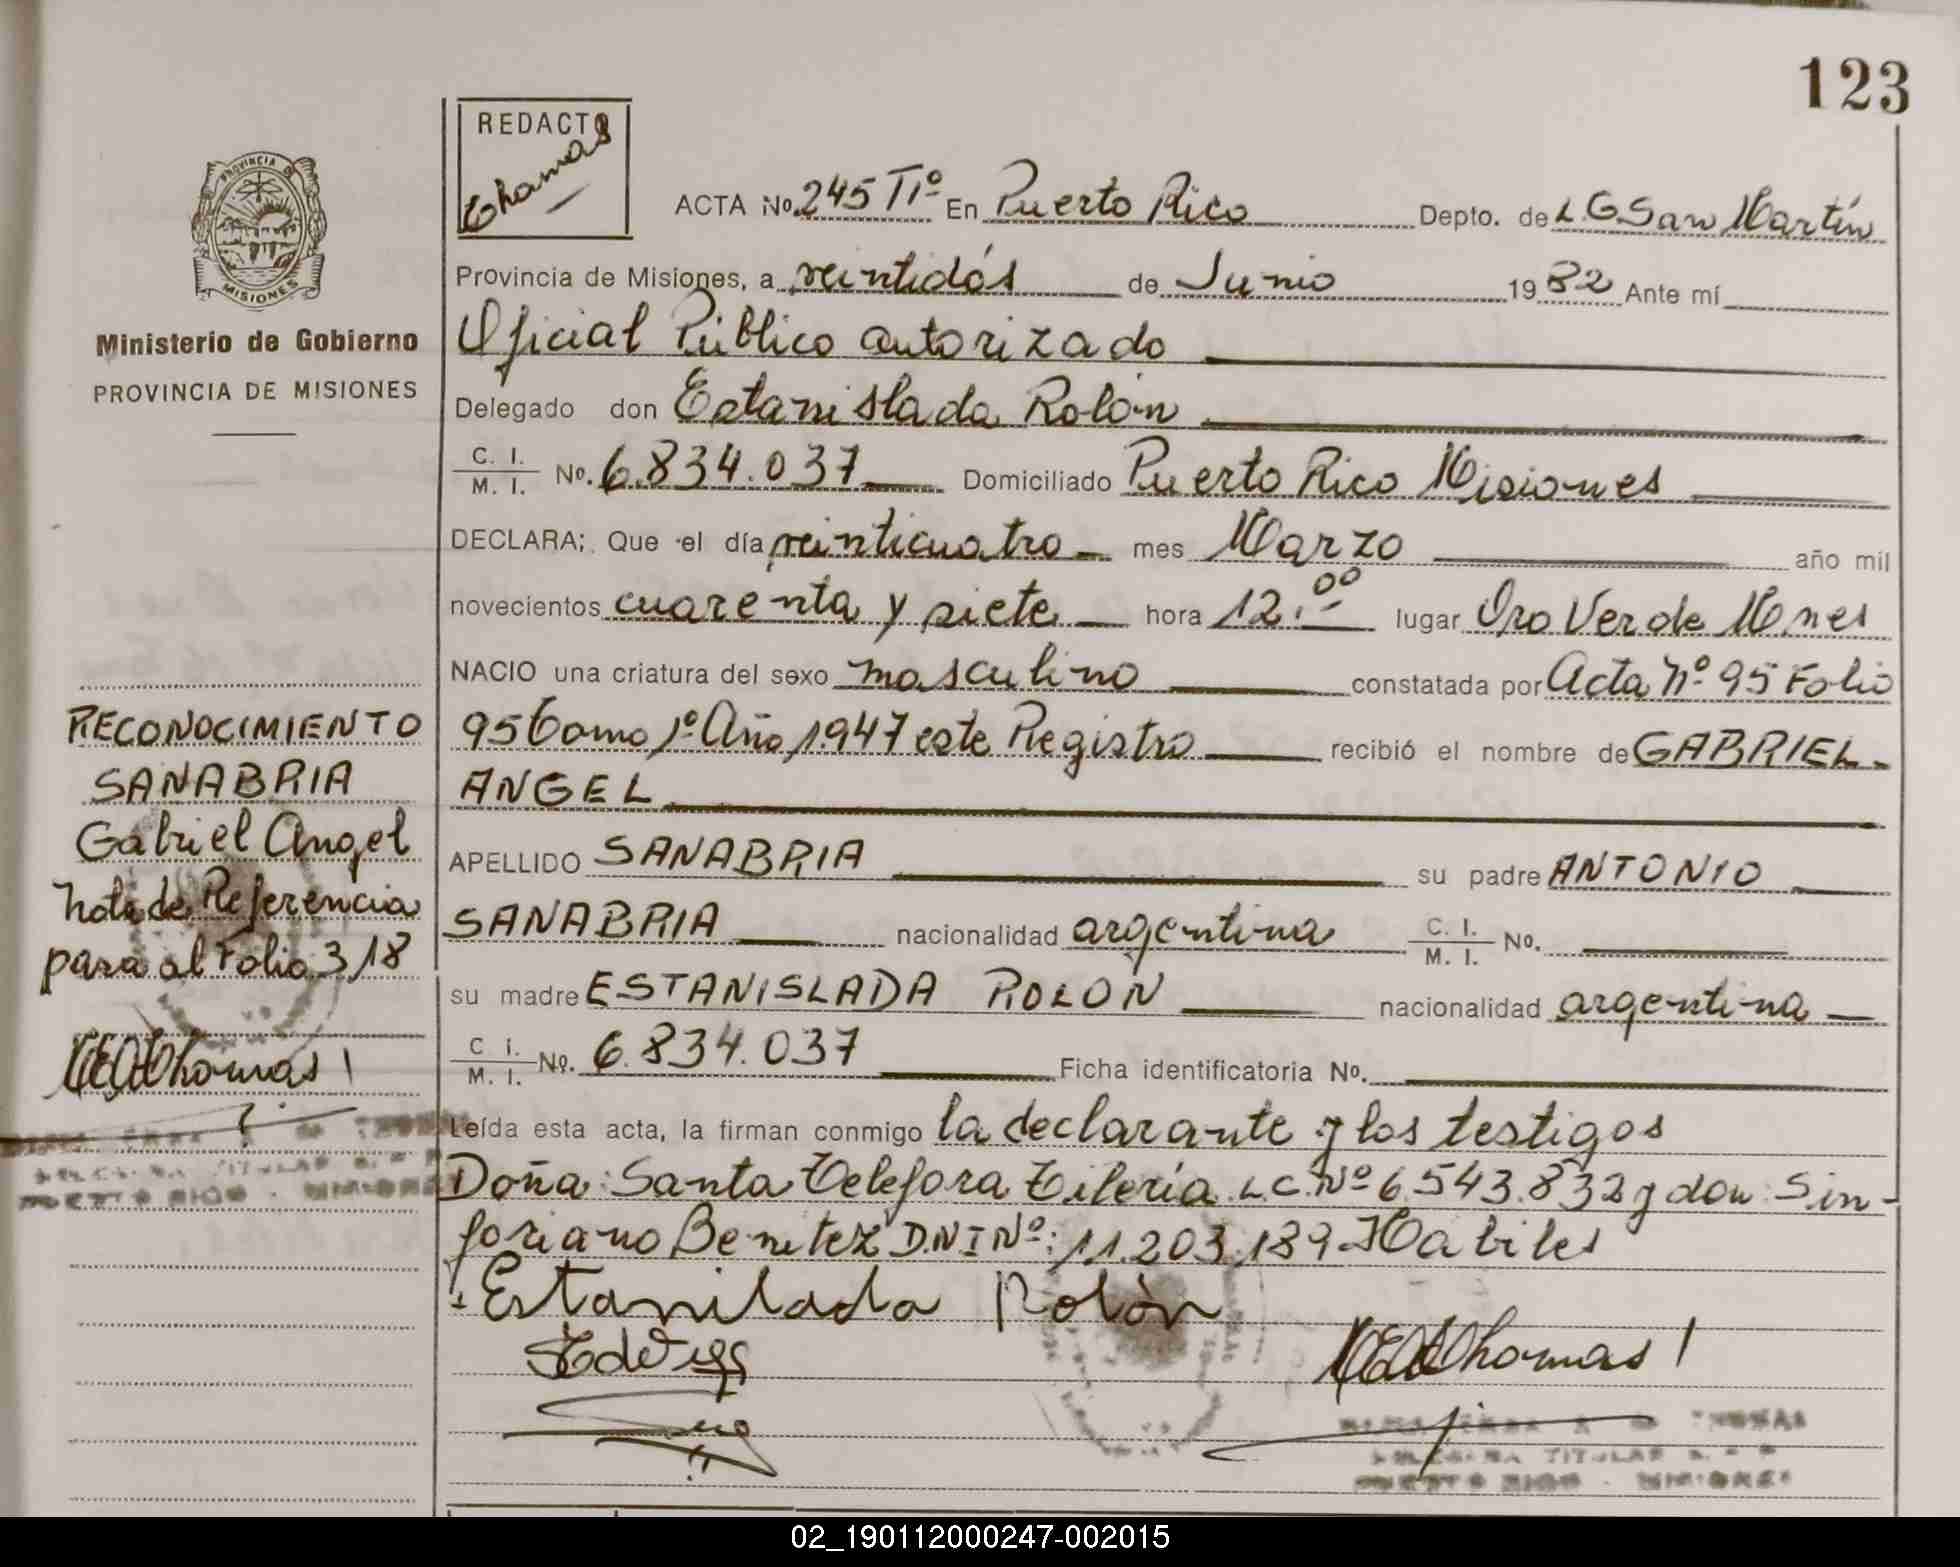 123
REDACTO
Thomas
PROVINCIA DE
MISIONES
Ministerio de Gobierno
PROVINCIA DE MISIONES
ACTA No. 245 Tº En Puerto Rico Depto. de L G San Martín
Provincia de Misiones, a veintidós de Junio 1982 Ante mí
Oficial Público autorizado
Delegado don Estanislada Rolón
C. I. / M. I. No. 6.834.037 Domiciliado Puerto Rico Misiones
DECLARA; Que el día veinticuatro mes Marzo año mil
novecientos cuarenta y siete hora 12.00 lugar Oro Verde Mnes
NACIO una criatura del sexo masculino constatada por Acta Nº 95 Folio
95 Tomo 1º Año 1.947 este Registro recibió el nombre de GABRIEL
ANGEL
APELLIDO SANABRIA su padre ANTONIO
SANABRIA nacionalidad argentina C. I. / M. I. No.
su madre ESTANISLADA ROLON nacionalidad argentina
C. I. / M. I. No. 6.834.037 Ficha identificatoria No.
Leída esta acta, la firman conmigo la declarante y los testigos
Doña: Santa Telefora Tilería L.C. Nº 6.543.832 y don: Sin-
foriano Benitez D.N.I Nº: 11.203.189 Habiles
Estanilada Rolón
Thomas
TITULAR
RECONOCIMIENTO
SANABRIA
Gabriel Angel
Nota de Referencia
para al Folio 318
Thomas
02_190112000247-002015